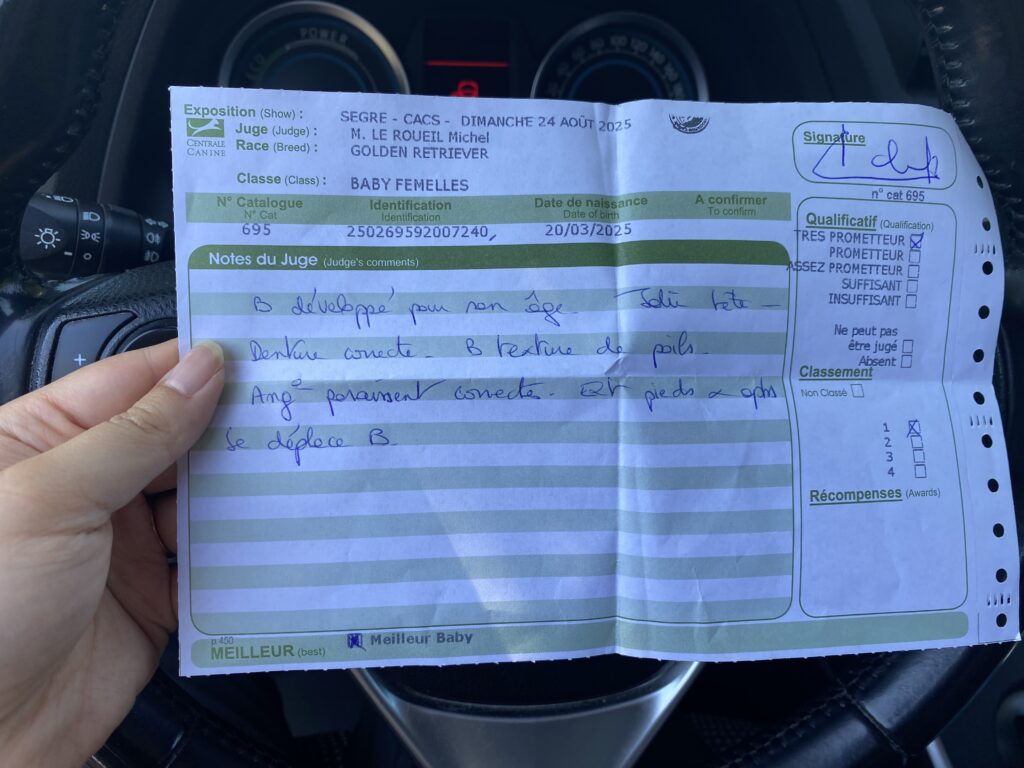 Exposition (Show) : SEGRE - CACS - DIMANCHE 24 AOÛT 2025
CENTRALE CANINE
Juge (Judge) : M. LE ROUEIL Michel
Race (Breed) : GOLDEN RETRIEVER
Classe (Class) : BABY FEMELLES
N° Catalogue Identification Date de naissance A confirmer
N° Cat Identification Date of birth To confirm
695 250269592007240, 20/03/2025
Notes du Juge (Judge's comments)
B développé pour son âge - Jolie tête -
Denture correcte - B texture de poils -
Ang° paraissent correctes - pieds
Se déplace B
p.450
MEILLEUR (best) Meilleur Baby
Signature
n° cat 695
Qualificatif (Qualification)
TRES PROMETTEUR
PROMETTEUR
ASSEZ PROMETTEUR
SUFFISANT
INSUFFISANT
Ne peut pas
être jugé
Absent
Classement
Non Classé
1
2
3
4
Récompenses (Awards)
POWER